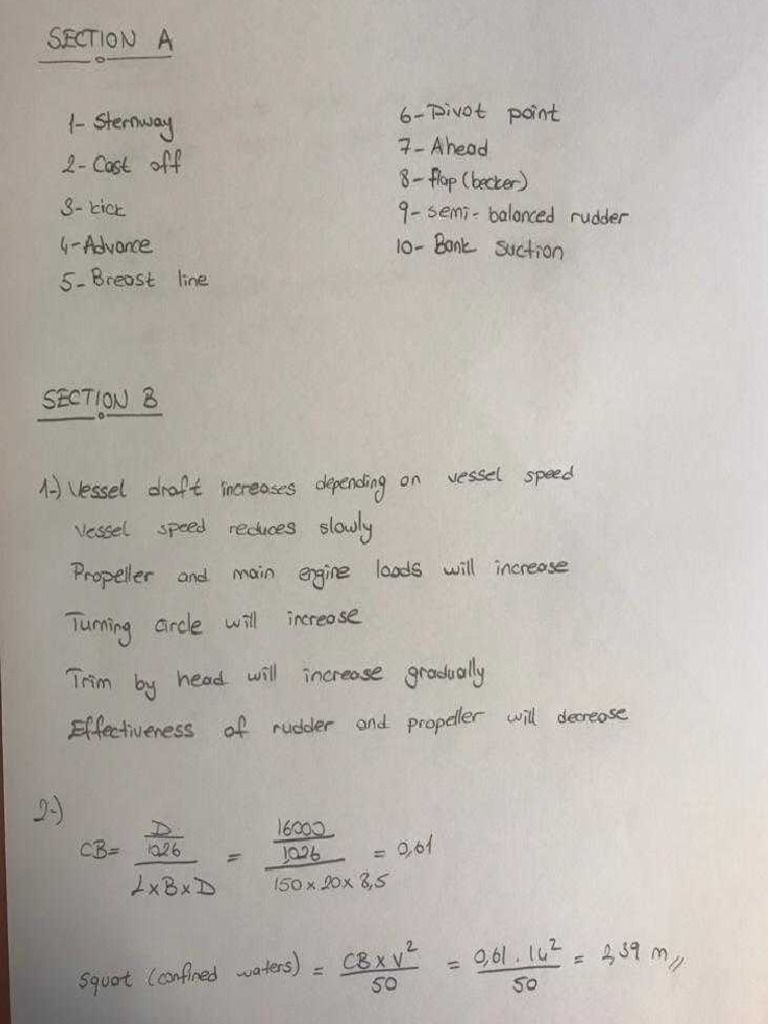 SECTION A
1- Sternway
2- Cast off
3- kick
4- Advance
5- Breast line
6- Pivot point
7- Ahead
8- flap (becker)
9- semi- balanced rudder
10- Bank suction
SECTION B
1-) Vessel draft increases depending on vessel speed
Vessel speed reduces slowly
Propeller and main engine loads will increase
Turning circle will increase
Trim by head will increase gradually
Effectiveness of rudder and propeller will decrease
2-)
CB = D / 1026 / L x B x D = 16000 / 1026 / 150 x 20 x 8,5 = 0,61
Squat (confined waters) = CB x V² / 50 = 0,61 . 14² / 50 = 2,39 m //